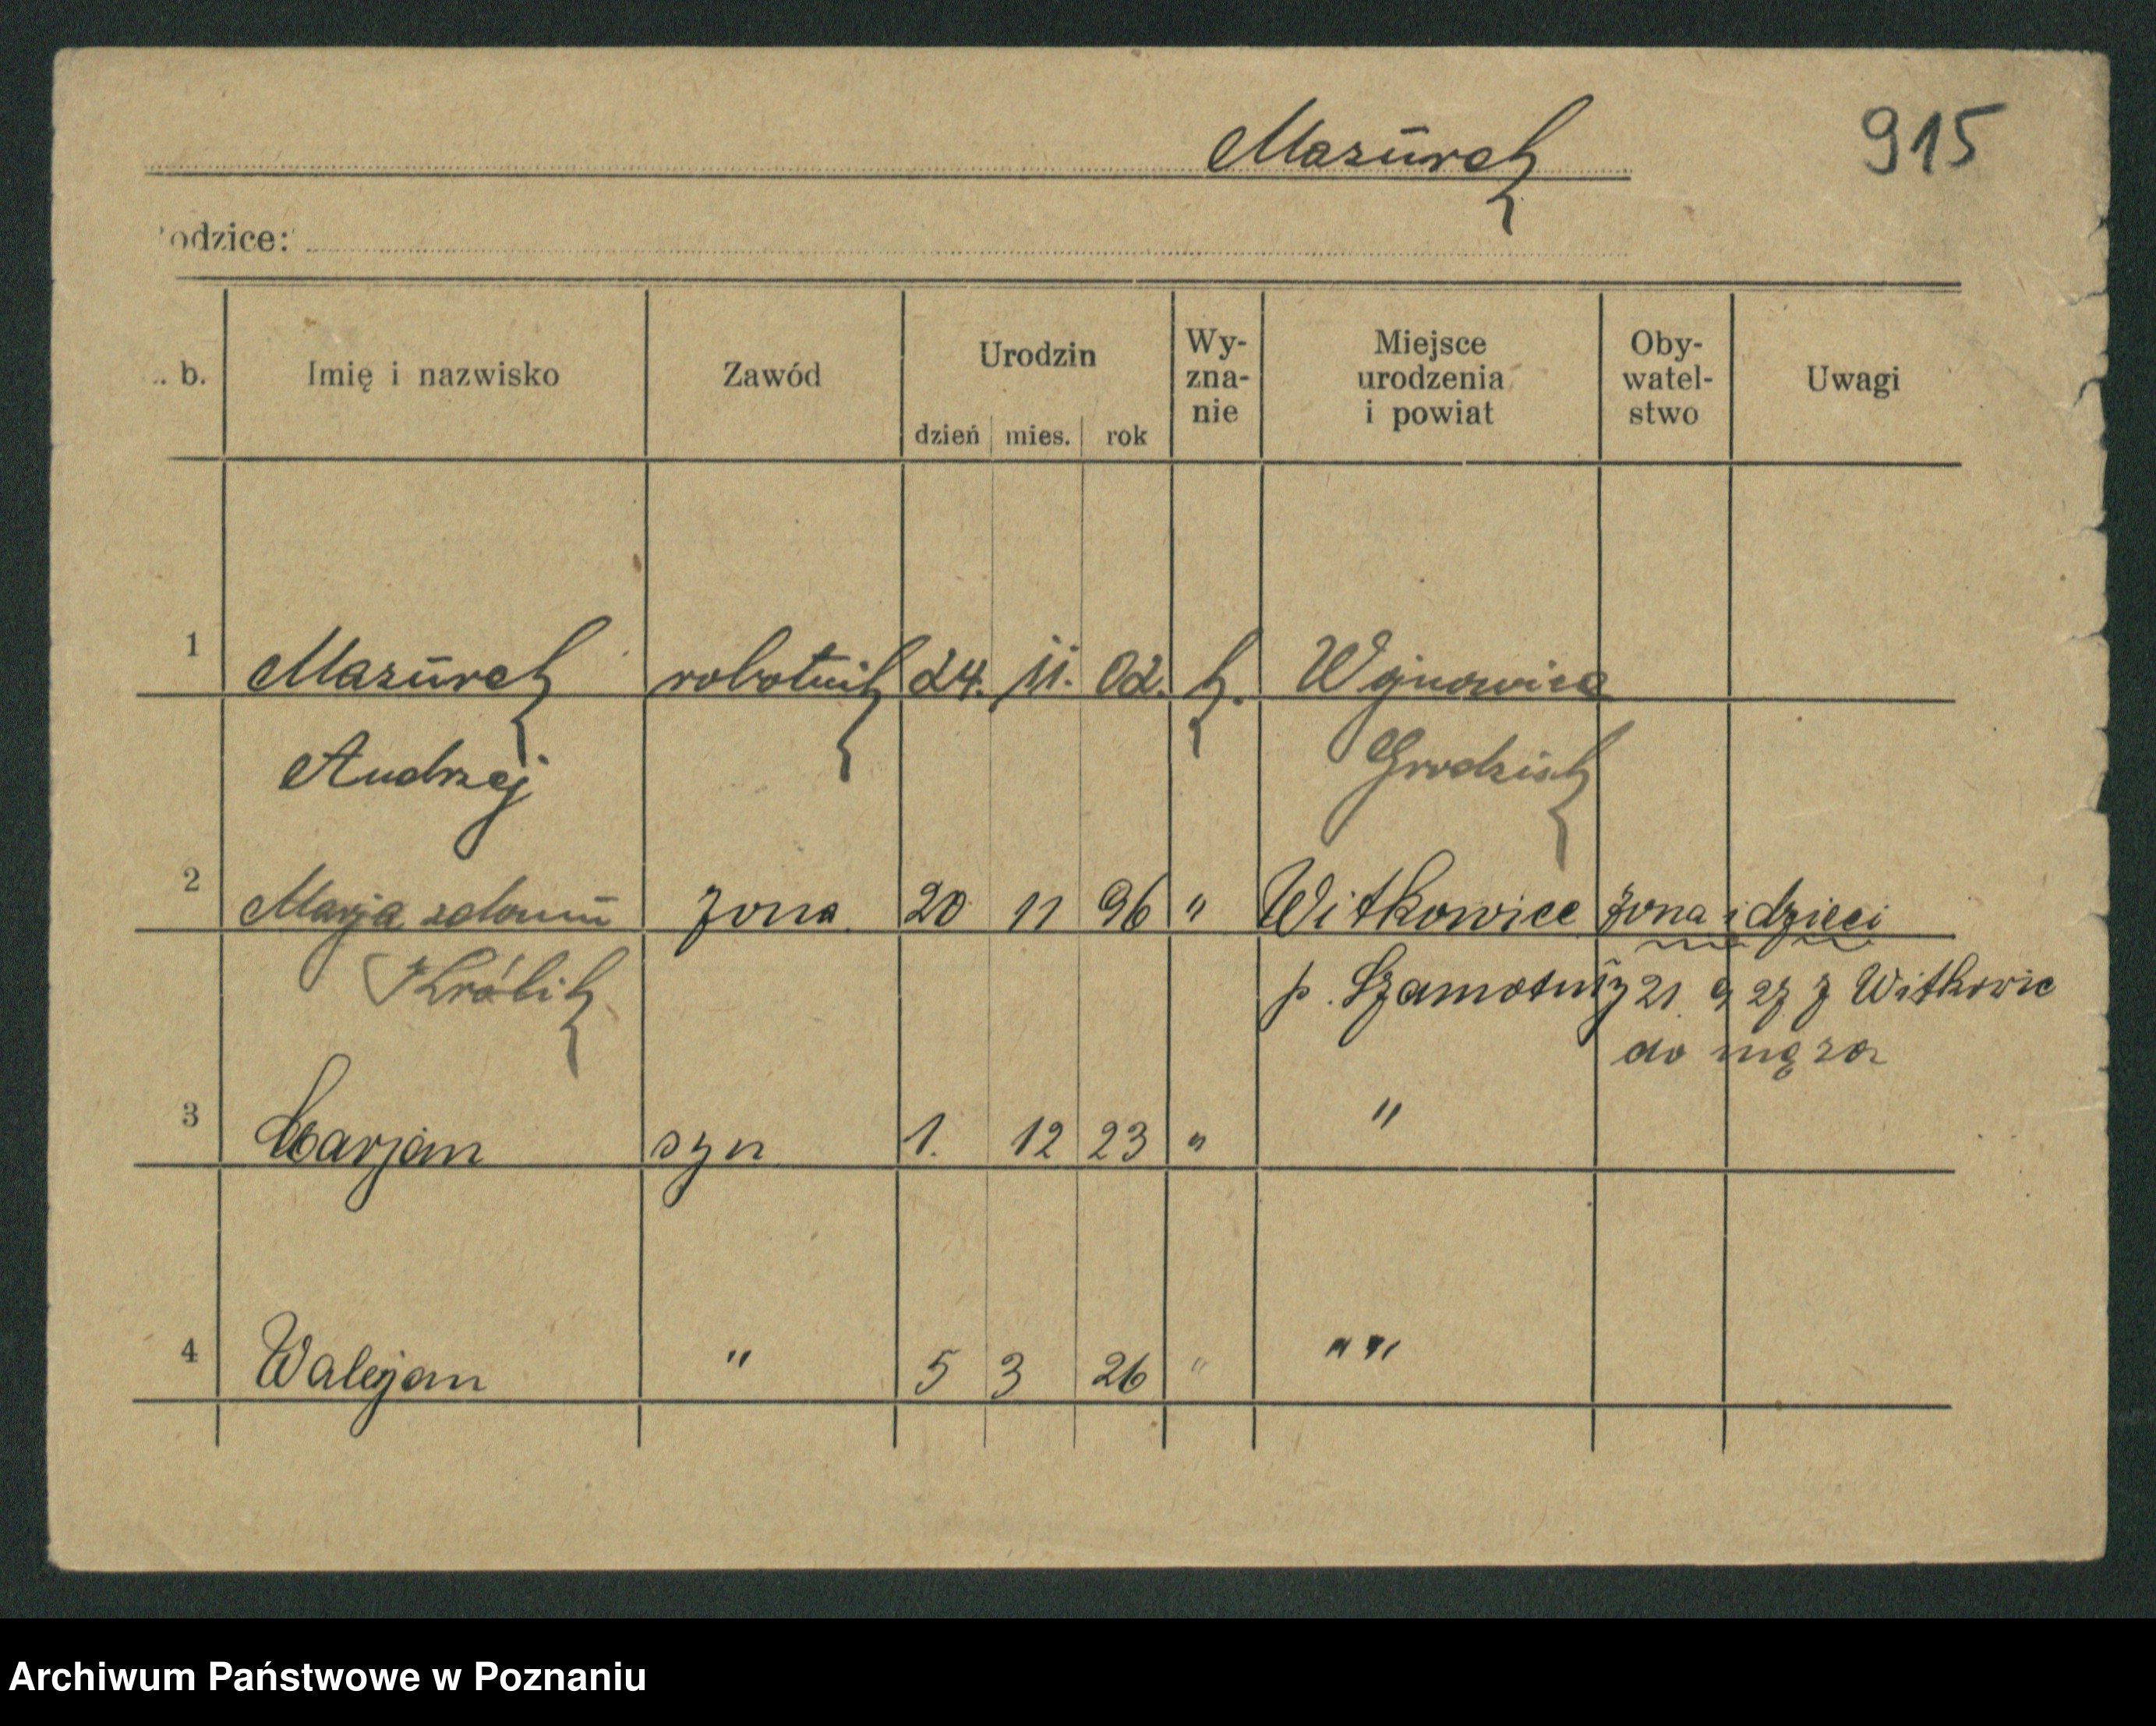 Mazurek
915
odzice:
. b. Imię i nazwisko Zawód Urodzin dzień mies. rok Wy-zna-nie Miejsce urodzenia i powiat Oby-watel-stwo Uwagi
1 Mazurek robotnik 24. 11. 02. k. Wojnowice
Andrzej Grodzisk
2 Marja z domu żona 20 11 96 " Witkowice żona i dzieci
Królik p. Szamotuły 21 9 27 z Witkowic
do męża
3 Marjan syn 1. 12 23 " "
4 Walerjan " 5 3 26 " " "
Archiwum Państwowe w Poznaniu